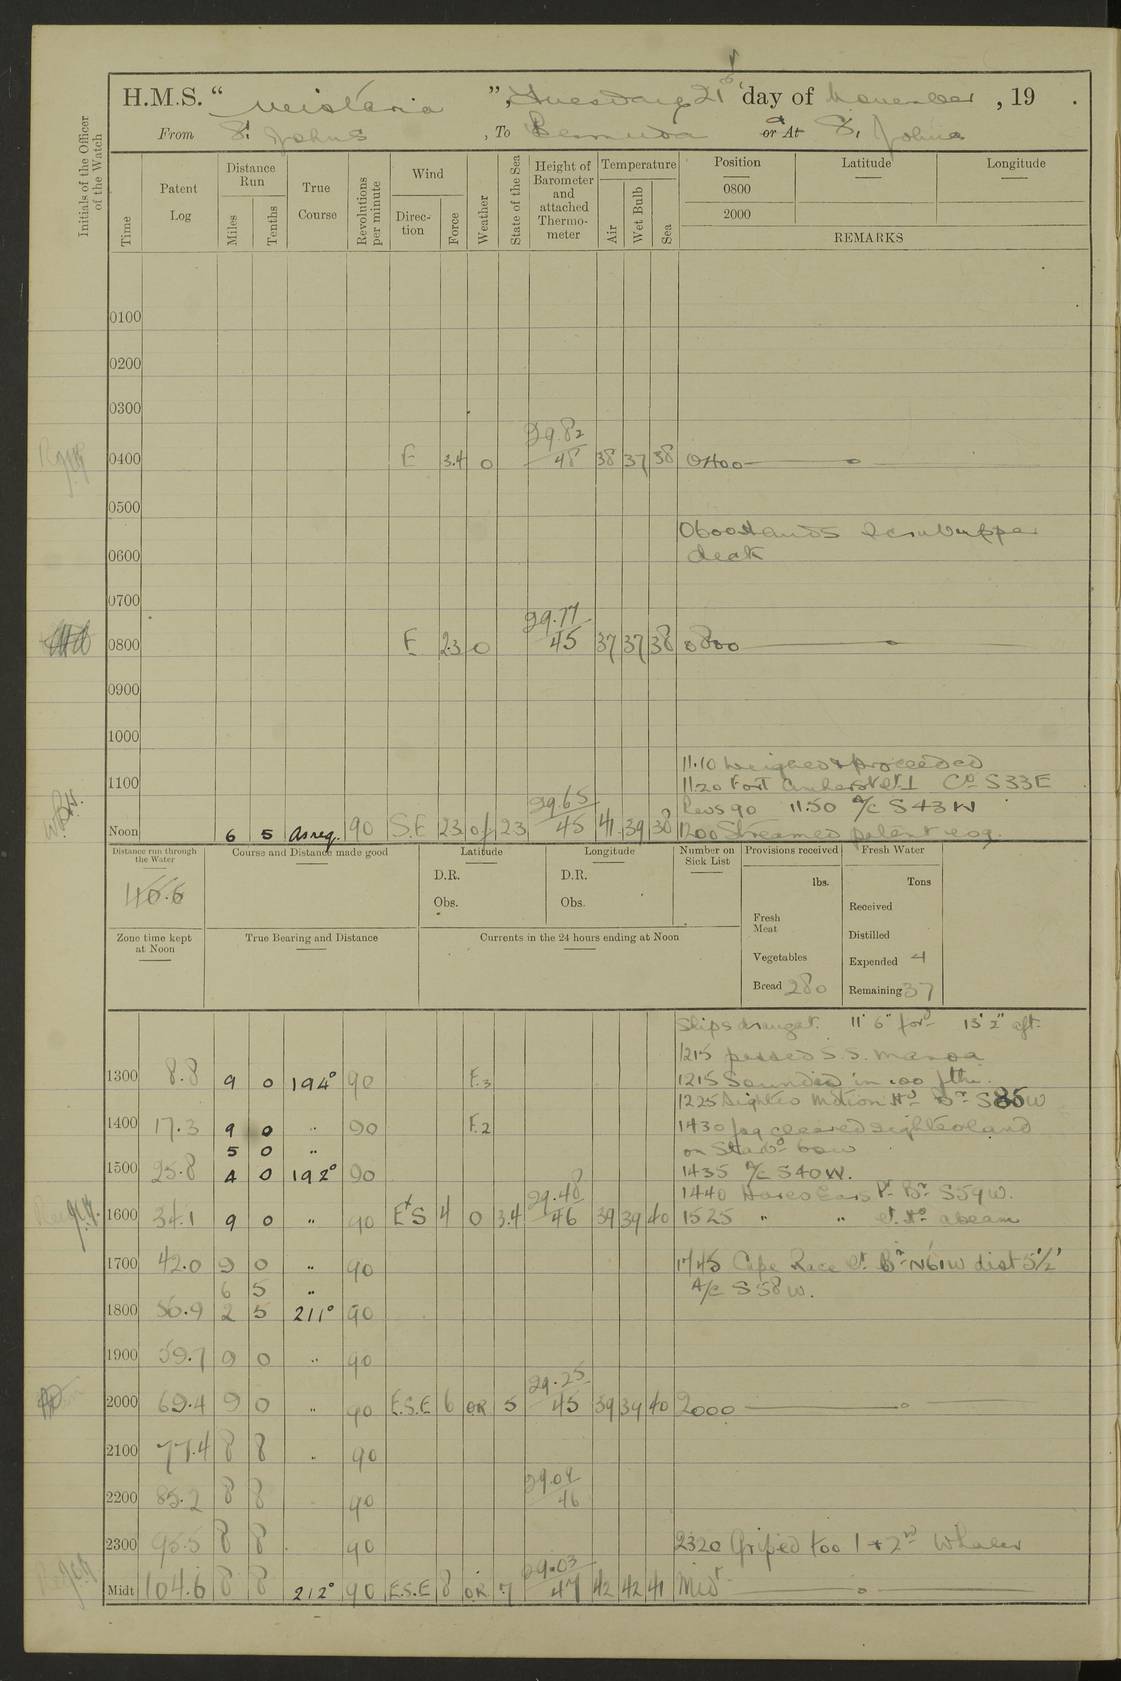 H.M.S. “ Wistaria ”, Tuesday 21st day of November , 19 .
From St Johns , To Bermuda or At St Johns
Initials of the Officer of the Watch
Time Patent Log Distance Run Miles Tenths True Course Revolutions per minute Wind Direc-tion Force Weather State of the Sea Height of Barometer and attached Thermo-meter Temperature Air Wet Bulb Sea Position Latitude Longitude
0800
2000
REMARKS
0100
0200
0300
0400 E 3.4 o 29.82 48 38 37 38 0400
0500
0600 Hands Scrub upper
0600 deck
0700
0800 E 2.3 o 29.77 45 37 37 38 0800
0900
1000
11.10 Weighed & proceeded
1100 11.20 Fort Amherst Co S33E
Revs 90 11.50 A/C S43W
Noon 6 5 As req. 90 S.E 23 of 23 29.65 45 41 39 38 1200 Streamed patent log.
Distance run through the Water
46.6
Course and Distance made good
Latitude
D.R.
Obs.
Longitude
D.R.
Obs.
Number on Sick List
Provisions received
lbs.
Fresh Meat
Vegetables
Bread 280
Fresh Water
Tons
Received
Distilled
Expended 4
Remaining 37
Zone time kept at Noon
True Bearing and Distance
Currents in the 24 hours ending at Noon
Ships draught. 11' 6" ford 13' 2" aft.
1215 passed S.S.
1300 8.8 9 0 194° 90 F.3 1215 Sounded in 100 fths.
1225 Sighted Motion Hd Br S85W
1400 17.3 9 0 " 90 F.2 1430 fog cleared sighted land
5 0 " on Starbd bow
1500 25.8 4 0 192° 90 1435 A/C S40W.
1440 Hares Ears Pt Br S59W.
1600 34.1 9 0 " 90 E'S 4 O 3.4 29.48 46 39 39 40 1525 " " abeam
1700 42.0 9 0 " 90 1745 Cape Race Lt Br N61W dist 5½'
6 5 " A/C S58W.
1800 50.9 2 5 211° 90
1900 59.7 9 0 " 90
2000 69.4 9 0 " 90 E.S.E 6 OR 5 29.25 45 39 39 40 2000
2100 77.4 8 8 " 90
2200 85.2 8 8 90 29.09 46
2300 95.5 8 8 90 2320 Griped too 1st & 2nd Whaler
Midt 104.6 8 8 212° 90 E.S.E 8 OR 7 29.03 47 42 42 41 Midt